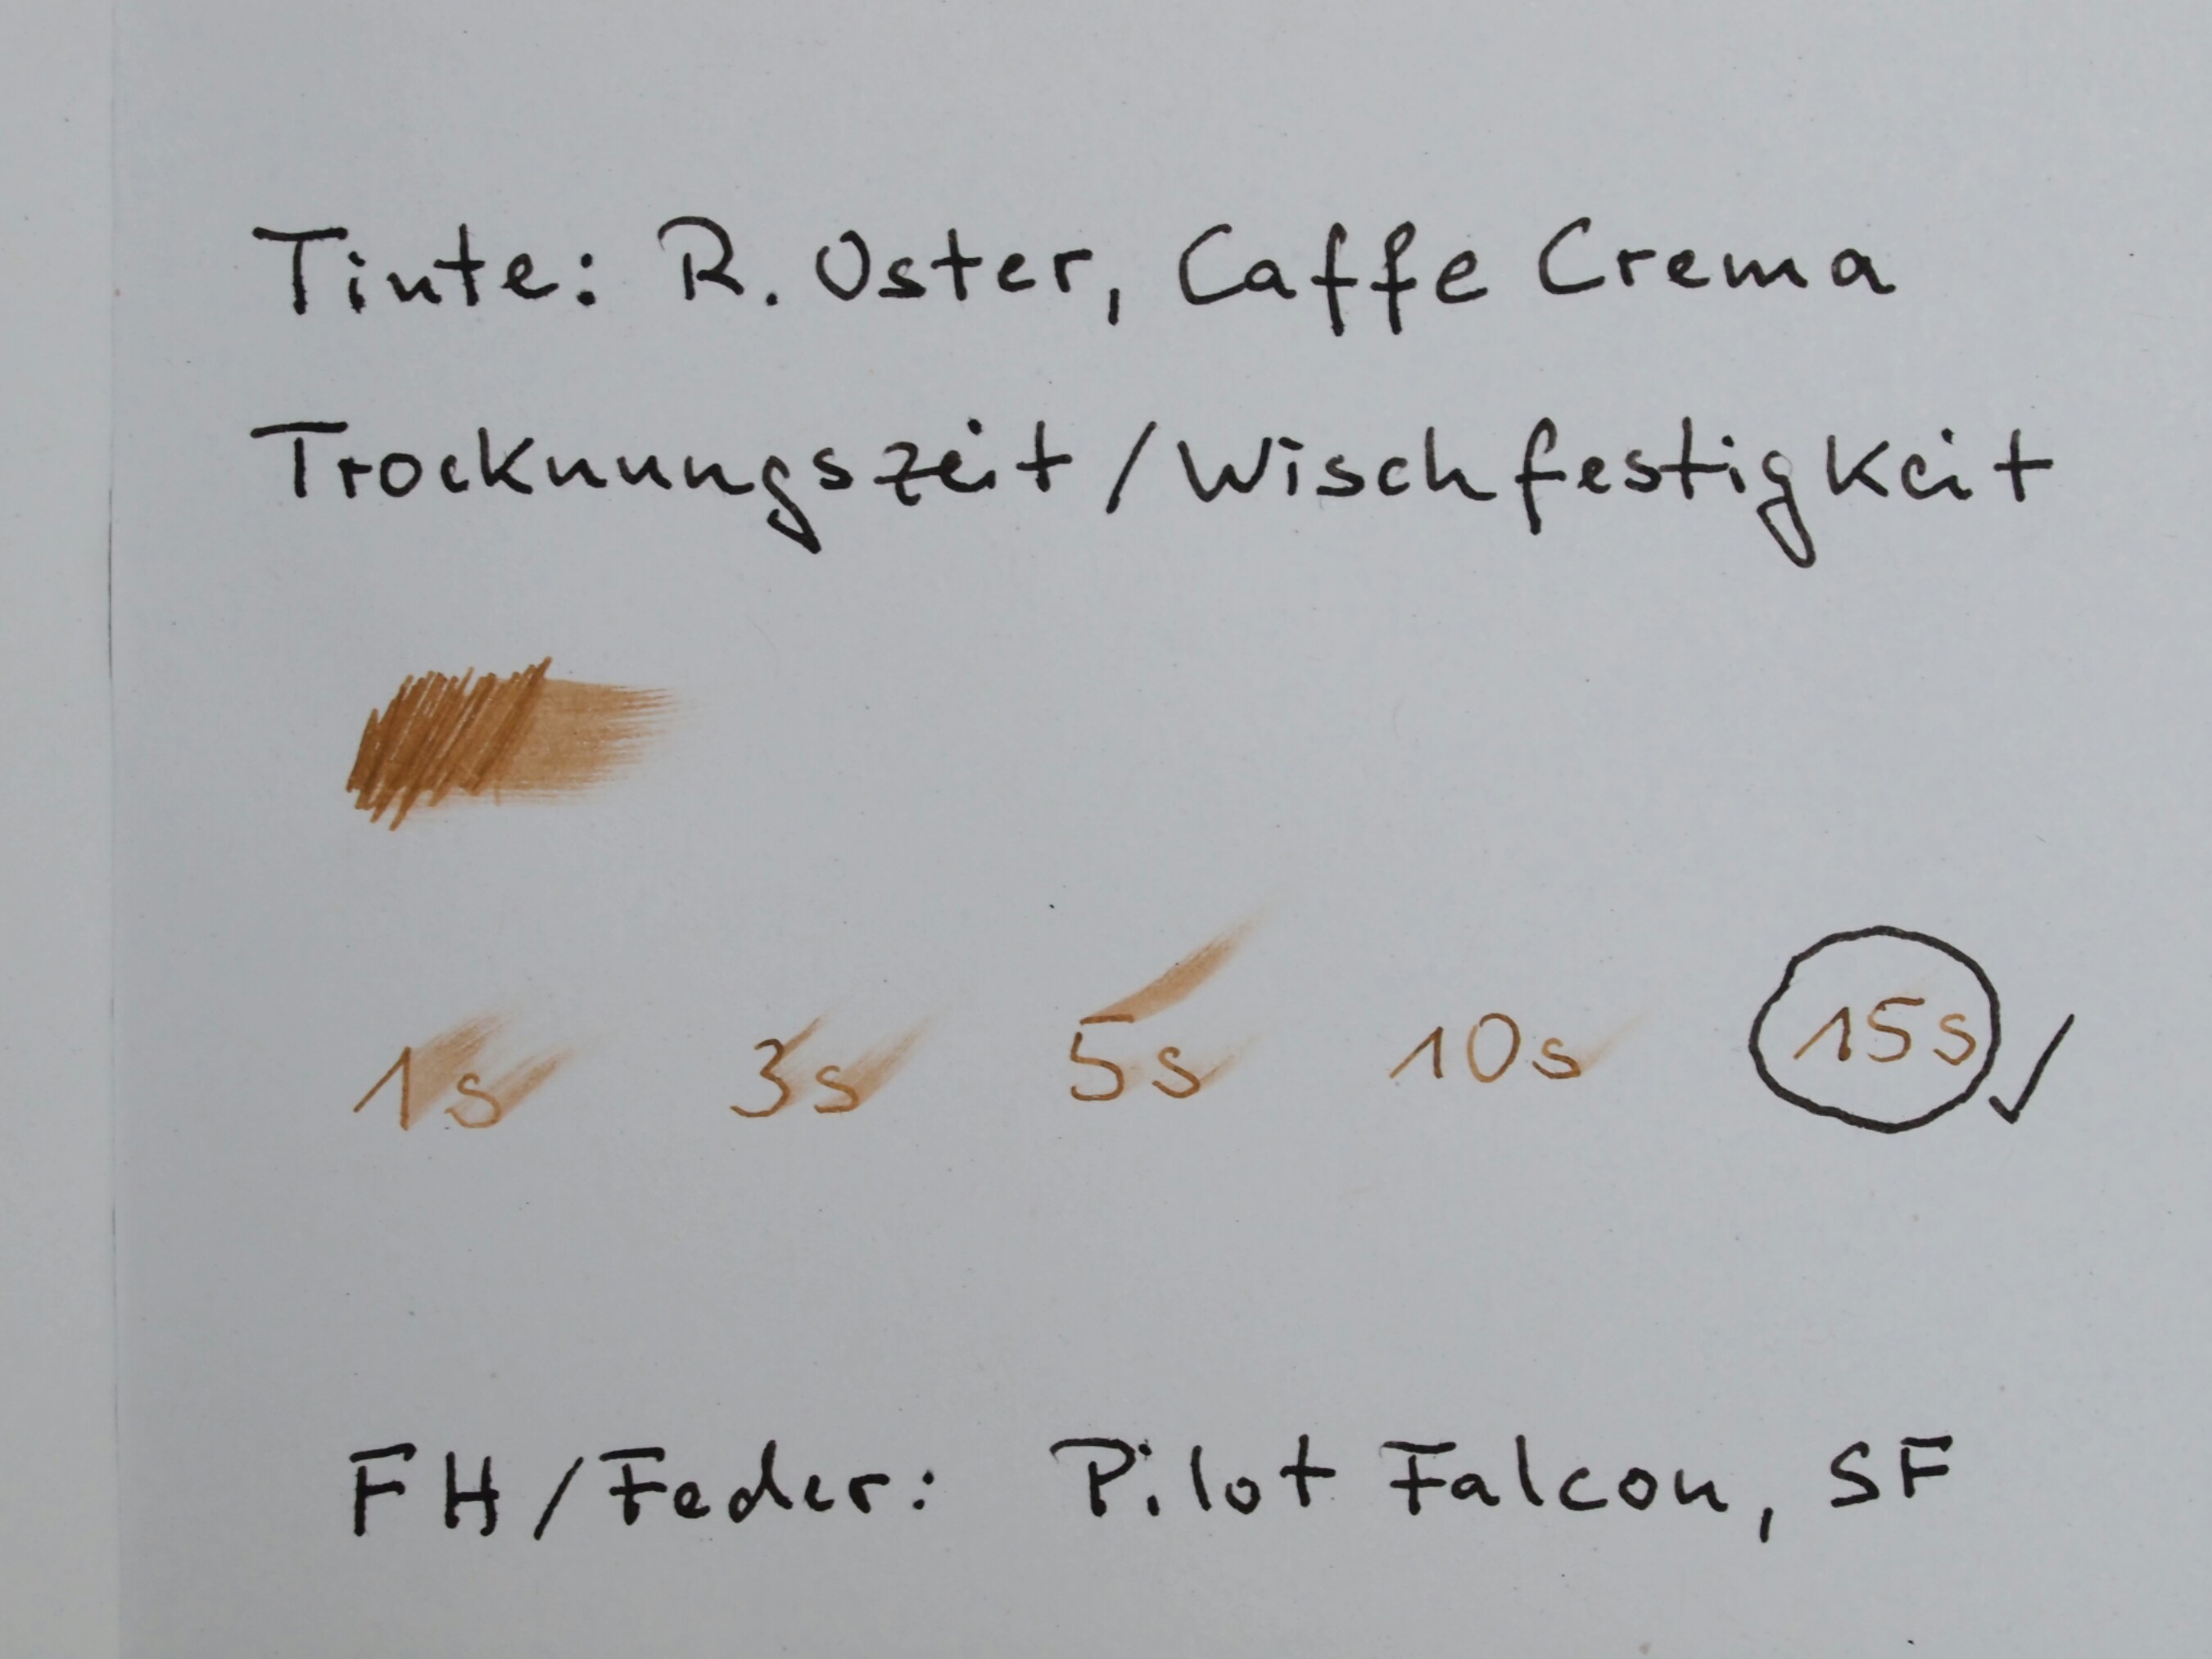 Tinte: R. Oster, Caffe Crema
Trocknungszeit/Wischfestigkeit
1s 3s 5s 10s 15s ✓
FH/Feder: Pilot Falcon, SF